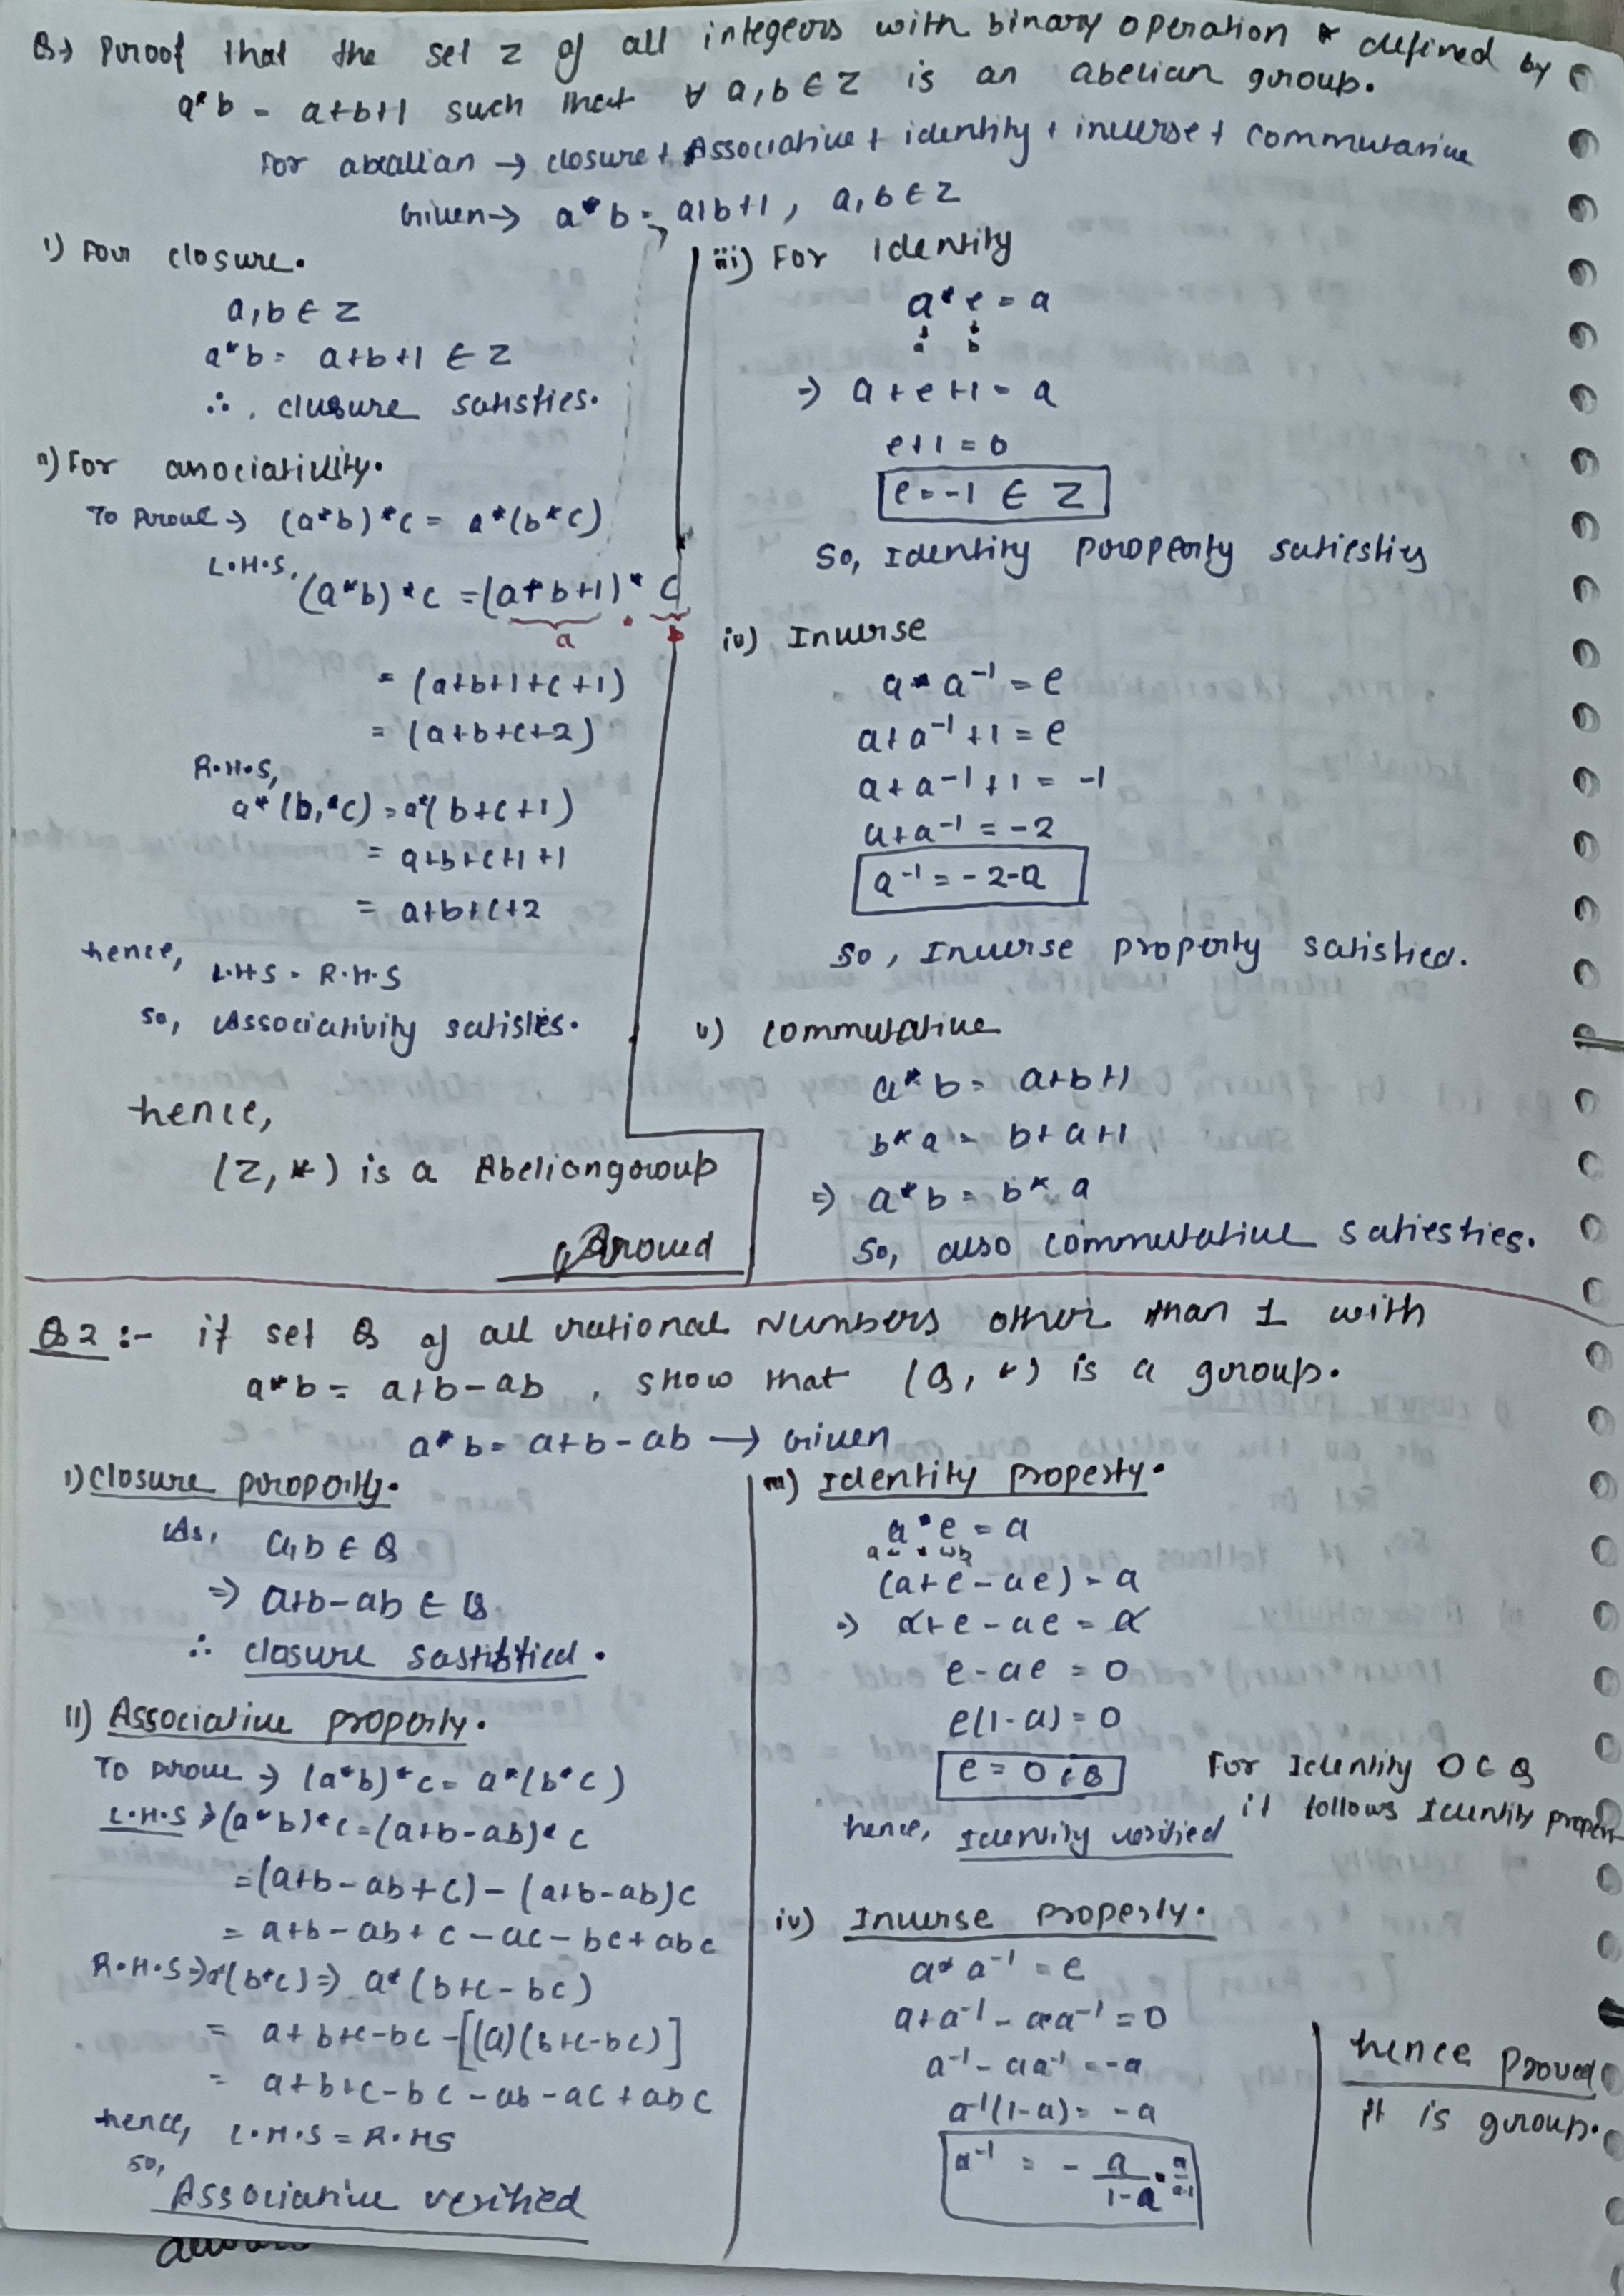 Q→ Proof that the set Z of all integers with binary operation * defined by
a*b = a+b+1 such that ∀ a,b ∈ Z is an abelian group.
For abxalian → closure + Associative + identity + inverse + commutative
Given → a*b = a+b+1, a,b ∈ Z
i) For closure.
a,b ∈ Z
a*b = a+b+1 ∈ Z
∴, closure satisfies.
ii) For associativity.
To prove → (a*b)*c = a*(b*c)
L.H.S, (a*b)*c = (a+b+1)*c
a * b
= (a+b+1+c+1)
= (a+b+c+2)
R.H.S,
a*(b*c) = a*(b+c+1)
= a+b+c+1+1
= a+b+c+2
hence, L.H.S = R.H.S
so, Associativity satisfies.
hence,
(Z, *) is a Abelian group
Proved
iii) For Identity
a*e = a
↓ ↓
a b
⇒ a+e+1 = a
e+1 = 0
e = -1 ∈ Z
So, Identity property satiesties
iv) Inverse
a * a⁻¹ = e
a+a⁻¹+1 = e
a+a⁻¹+1 = -1
a+a⁻¹ = -2
a⁻¹ = -2-a
So, Inverse property satisfied.
v) Commutative
a*b = a+b+1
b*a = b+a+1
⇒ a*b = b*a
So, also commutative satiesties.
Q2 :- if set Q of all rational Numbers other than 1 with
a*b = a+b-ab, show that (Q, *) is a group.
a*b = a+b-ab → Given
i) Closure property.
As, a,b ∈ Q
⇒ a+b-ab ∈ Q
∴ closure sastistied.
II) Associative property.
To prove → (a*b)*c = a*(b*c)
L.H.S → (a*b)*c = (a+b-ab)*c
= (a+b-ab+c) - (a+b-ab)c
= a+b-ab+c-ac-bc+abc
R.H.S → a*(b*c) ⇒ a*(b+c-bc)
= a+b+c-bc-[(a)(b+c-bc)]
= a+b+c-bc-ab-ac+abc
hence, L.H.S = R.HS
so,
Associative verified
iii) Identity property.
a*e = a
a * b
(a+e-ae) = a
⇒ a+e-ae = a
e-ae = 0
e(1-a) = 0
e = 0 ∈ Q For Identity 0 ∈ Q
hence, Identity verified, it follows Identity propert
iv) Inverse property.
a*a⁻¹ = e
a+a⁻¹-aa⁻¹ = 0
a⁻¹-aa⁻¹ = -a
a⁻¹(1-a) = -a
a⁻¹ = - a/1-a = a/a-1
hence proved
it is group.